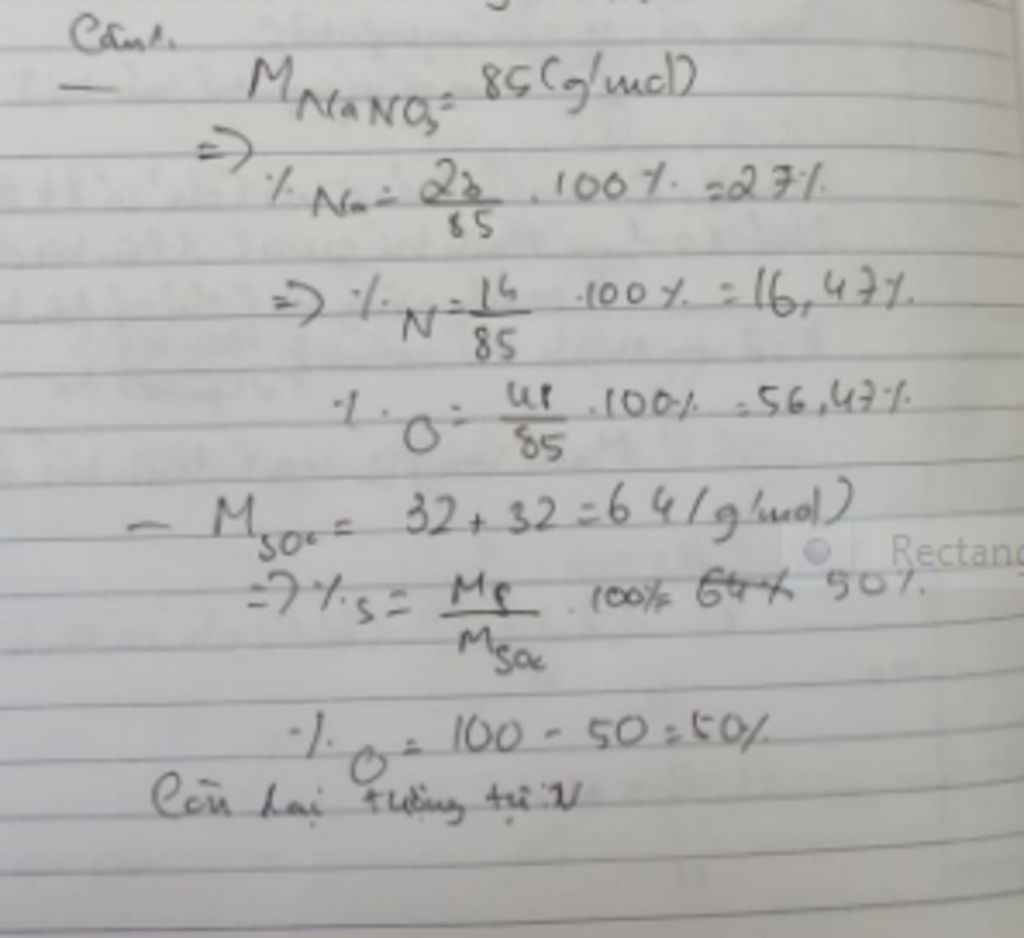 Câu 1.
— M NaNO3 = 85 (g/mol)
=> % Na = 23/85 . 100% = 27%
=> % N = 14/85 .100% = 16,47%
% O = 48/85 .100% = 56,47%
— M SO2 = 32 + 32 = 64 (g/mol)
Rectang
=> % S = MS/MSO2 . 100% = 50%
% O = 100 - 50 = 50%
Còn lại tương tự :V